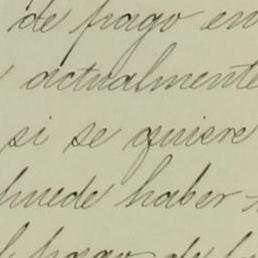 de pago en
actualmente
si se quiere
puede haber
pago de